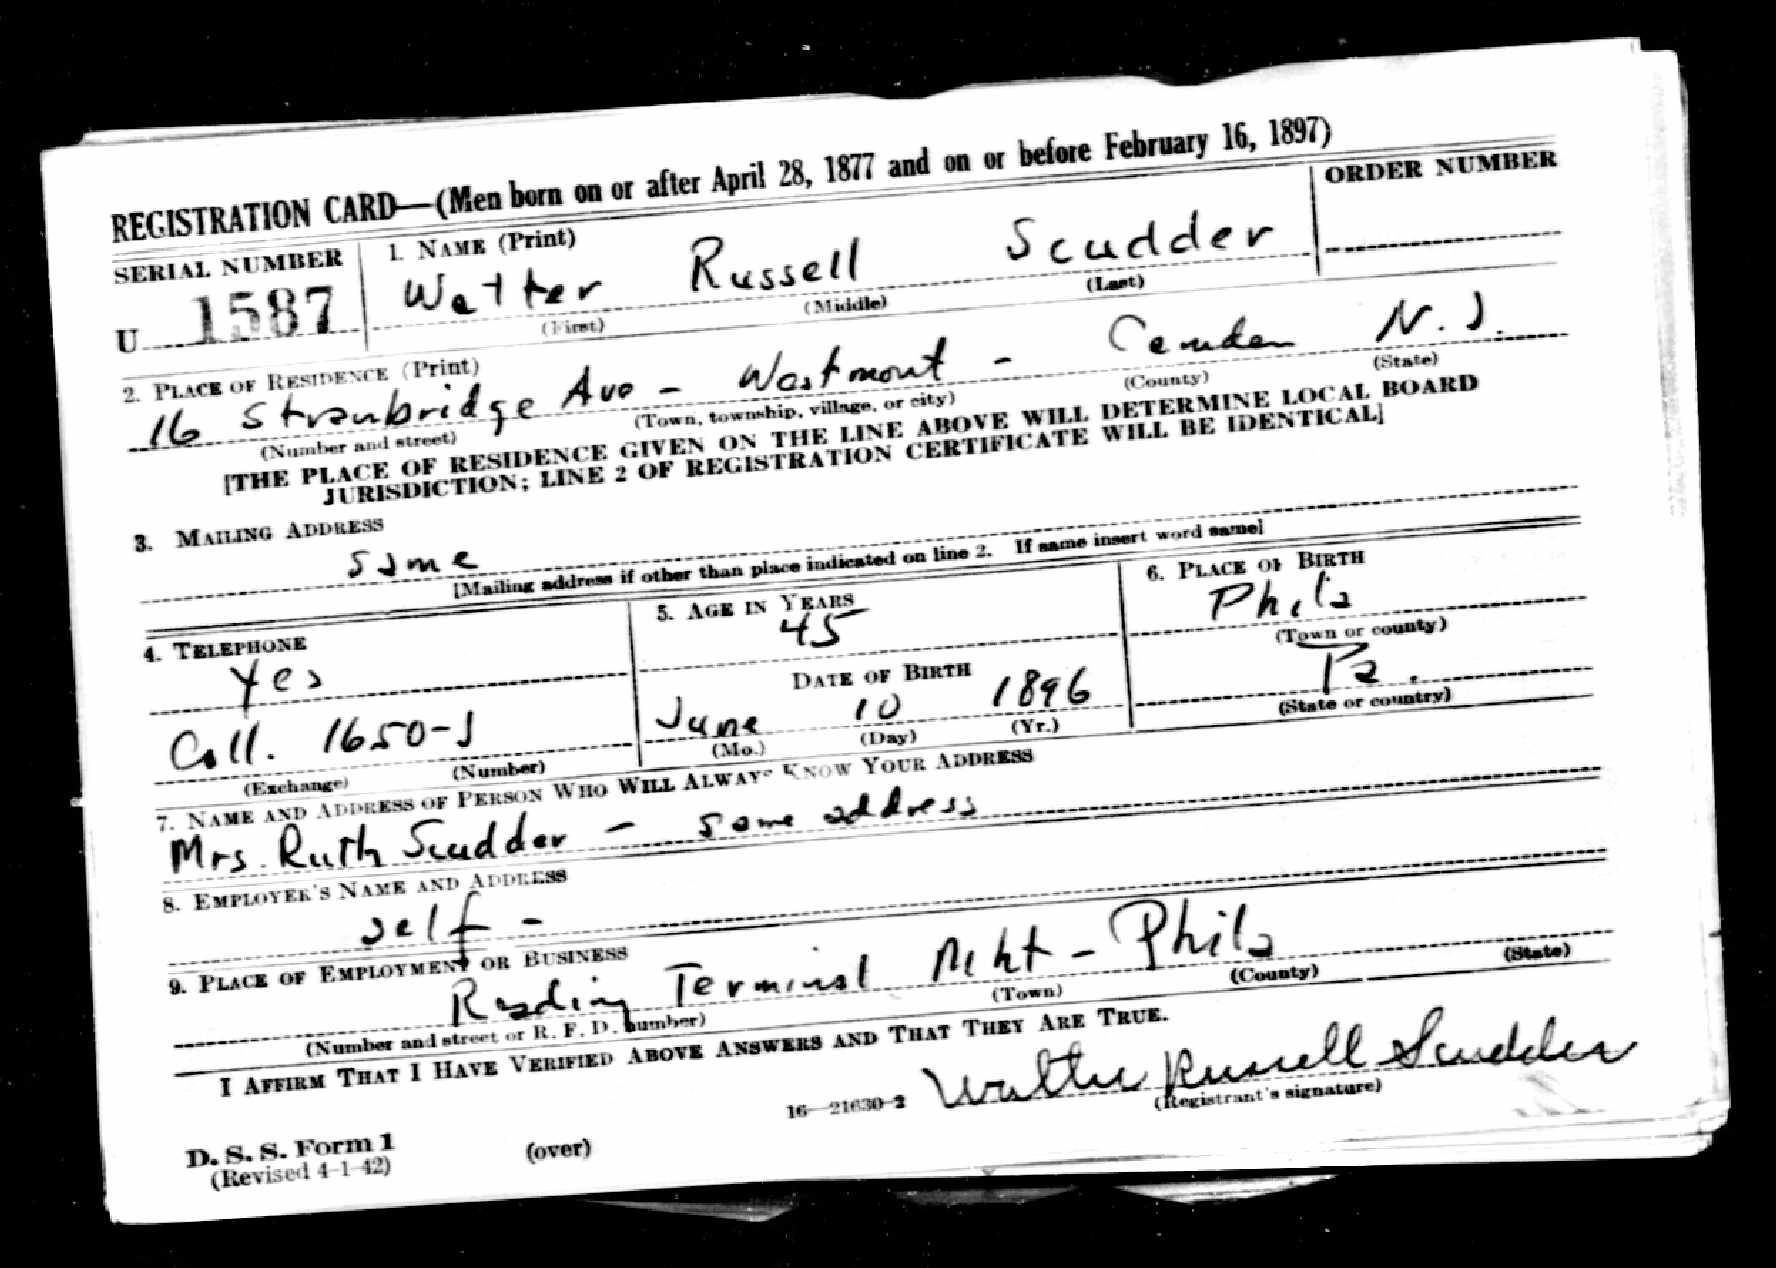 REGISTRATION CARD—(Men born on or after April 28, 1877 and on or before February 16, 1897)
SERIAL NUMBER
U 1587
1. NAME (Print)
Walter Russell Scudder
(First) (Middle) (Last)
ORDER NUMBER
2. PLACE OF RESIDENCE (Print)
16 Strawbridge Ave - Westmont - Camden N.J.
(Number and street) (Town, township, village, or city) (County) (State)
[THE PLACE OF RESIDENCE GIVEN ON THE LINE ABOVE WILL DETERMINE LOCAL BOARD
JURISDICTION; LINE 2 OF REGISTRATION CERTIFICATE WILL BE IDENTICAL]
3. MAILING ADDRESS
same
[Mailing address if other than place indicated on line 2. If same insert word same]
4. TELEPHONE
Yes
Coll. 1650-J
(Exchange) (Number)
5. AGE IN YEARS
45
DATE OF BIRTH
June 10 1896
(Mo.) (Day) (Yr.)
6. PLACE OF BIRTH
Phila
(Town or county)
Pa.
(State or country)
7. NAME AND ADDRESS OF PERSON WHO WILL ALWAYS KNOW YOUR ADDRESS
Mrs. Ruth Scudder - same address
8. EMPLOYER'S NAME AND ADDRESS
self -
9. PLACE OF EMPLOYMENT OR BUSINESS
Reading Terminal Mkt - Phila
(Number and street or R. F. D. number) (Town) (County) (State)
I AFFIRM THAT I HAVE VERIFIED ABOVE ANSWERS AND THAT THEY ARE TRUE.
Walter Russell Scudder
(Registrant's signature)
16—21630-2
D. S. S. Form 1
(Revised 4-1-42)
(over)